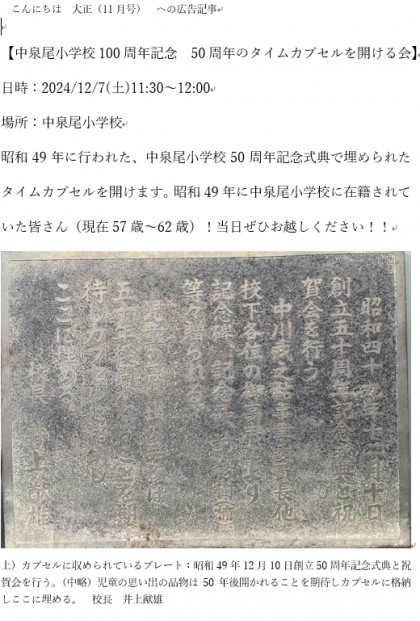 こんにちは　大正（11月号）　への広告記事
【中泉尾小学校100周年記念　50周年のタイムカプセルを開ける会】
日時：2024/12/7(土)11:30～12:00
場所：中泉尾小学校
昭和49年に行われた、中泉尾小学校50周年記念式典で埋められた
タイムカプセルを開けます。昭和49年に中泉尾小学校に在籍されて
いた皆さん（現在57歳～62歳）！当日ぜひお越しください！！
昭和四十九年十二月十日
創立五十周年記念式典と祝
賀会を行う
校下各位の
記念碑
等々贈られる
五十年
待しカプセルに格納し
ここに埋める
井上猷雄
上）カプセルに収められているプレート：昭和49年12月10日創立50周年記念式典と祝
賀会を行う。（中略）児童の思い出の品物は50年後開かれることを期待しカプセルに格納
しここに埋める。　校長　井上猷雄